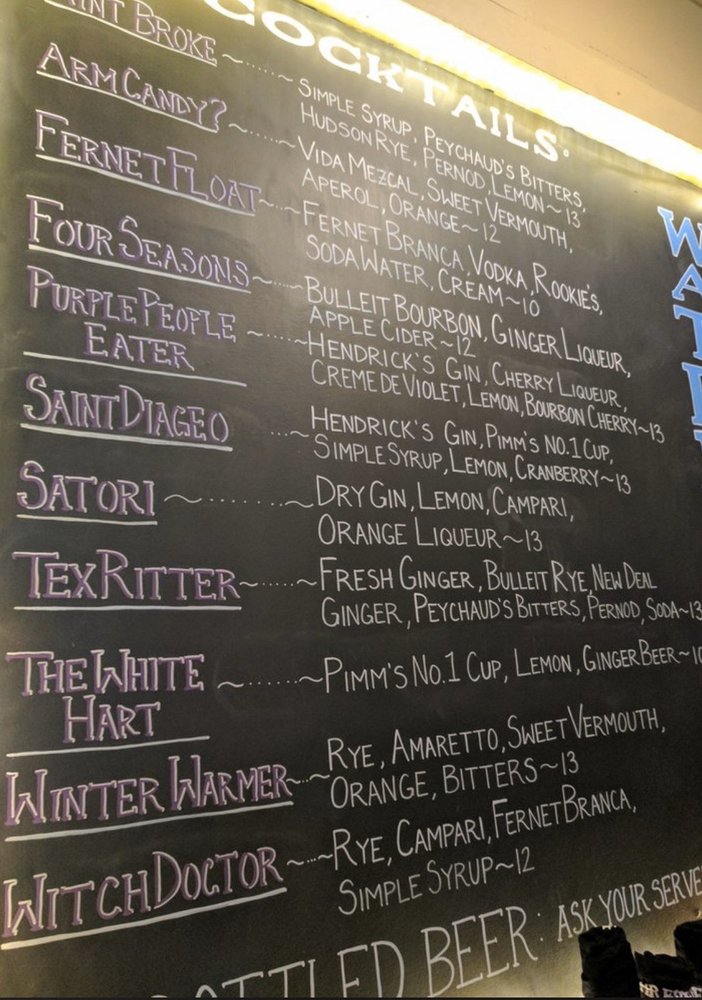 COCKTAILS
BROKE
SIMPLE SYRUP, PEYCHAUD'S BITTERS,
HUDSON RYE, PERNOD, LEMON~13
ARM CANDY?
VIDA MEZCAL, SWEET VERMOUTH,
APEROL, ORANGE~12
FERNET FLOAT
FERNET BRANCA, VODKA, ROOKIE'S,
SODA WATER, CREAM~10
FOUR SEASONS
BULLEIT BOURBON, GINGER LIQUEUR,
APPLE CIDER~12
PURPLE PEOPLE
EATER
HENDRICK'S GIN, CHERRY LIQUEUR,
CREME DE VIOLET, LEMON, BOURBON CHERRY~13
SAINT DIAGEO
HENDRICK'S GIN, PIMM'S NO.1 CUP,
SIMPLE SYRUP, LEMON, CRANBERRY~13
SATORI
DRY GIN, LEMON, CAMPARI,
ORANGE LIQUEUR~13
TEX RITTER
FRESH GINGER, BULLEIT RYE, NEW DEAL
GINGER, PEYCHAUD'S BITTERS, PERNOD, SODA~13
THE WHITE
HART
PIMM'S NO.1 CUP, LEMON, GINGER BEER~10
WINTER WARMER
RYE, AMARETTO, SWEET VERMOUTH,
ORANGE, BITTERS~13
WITCH DOCTOR
RYE, CAMPARI, FERNET BRANCA,
SIMPLE SYRUP~12
BOTTLED BEER: ASK YOUR SERVE